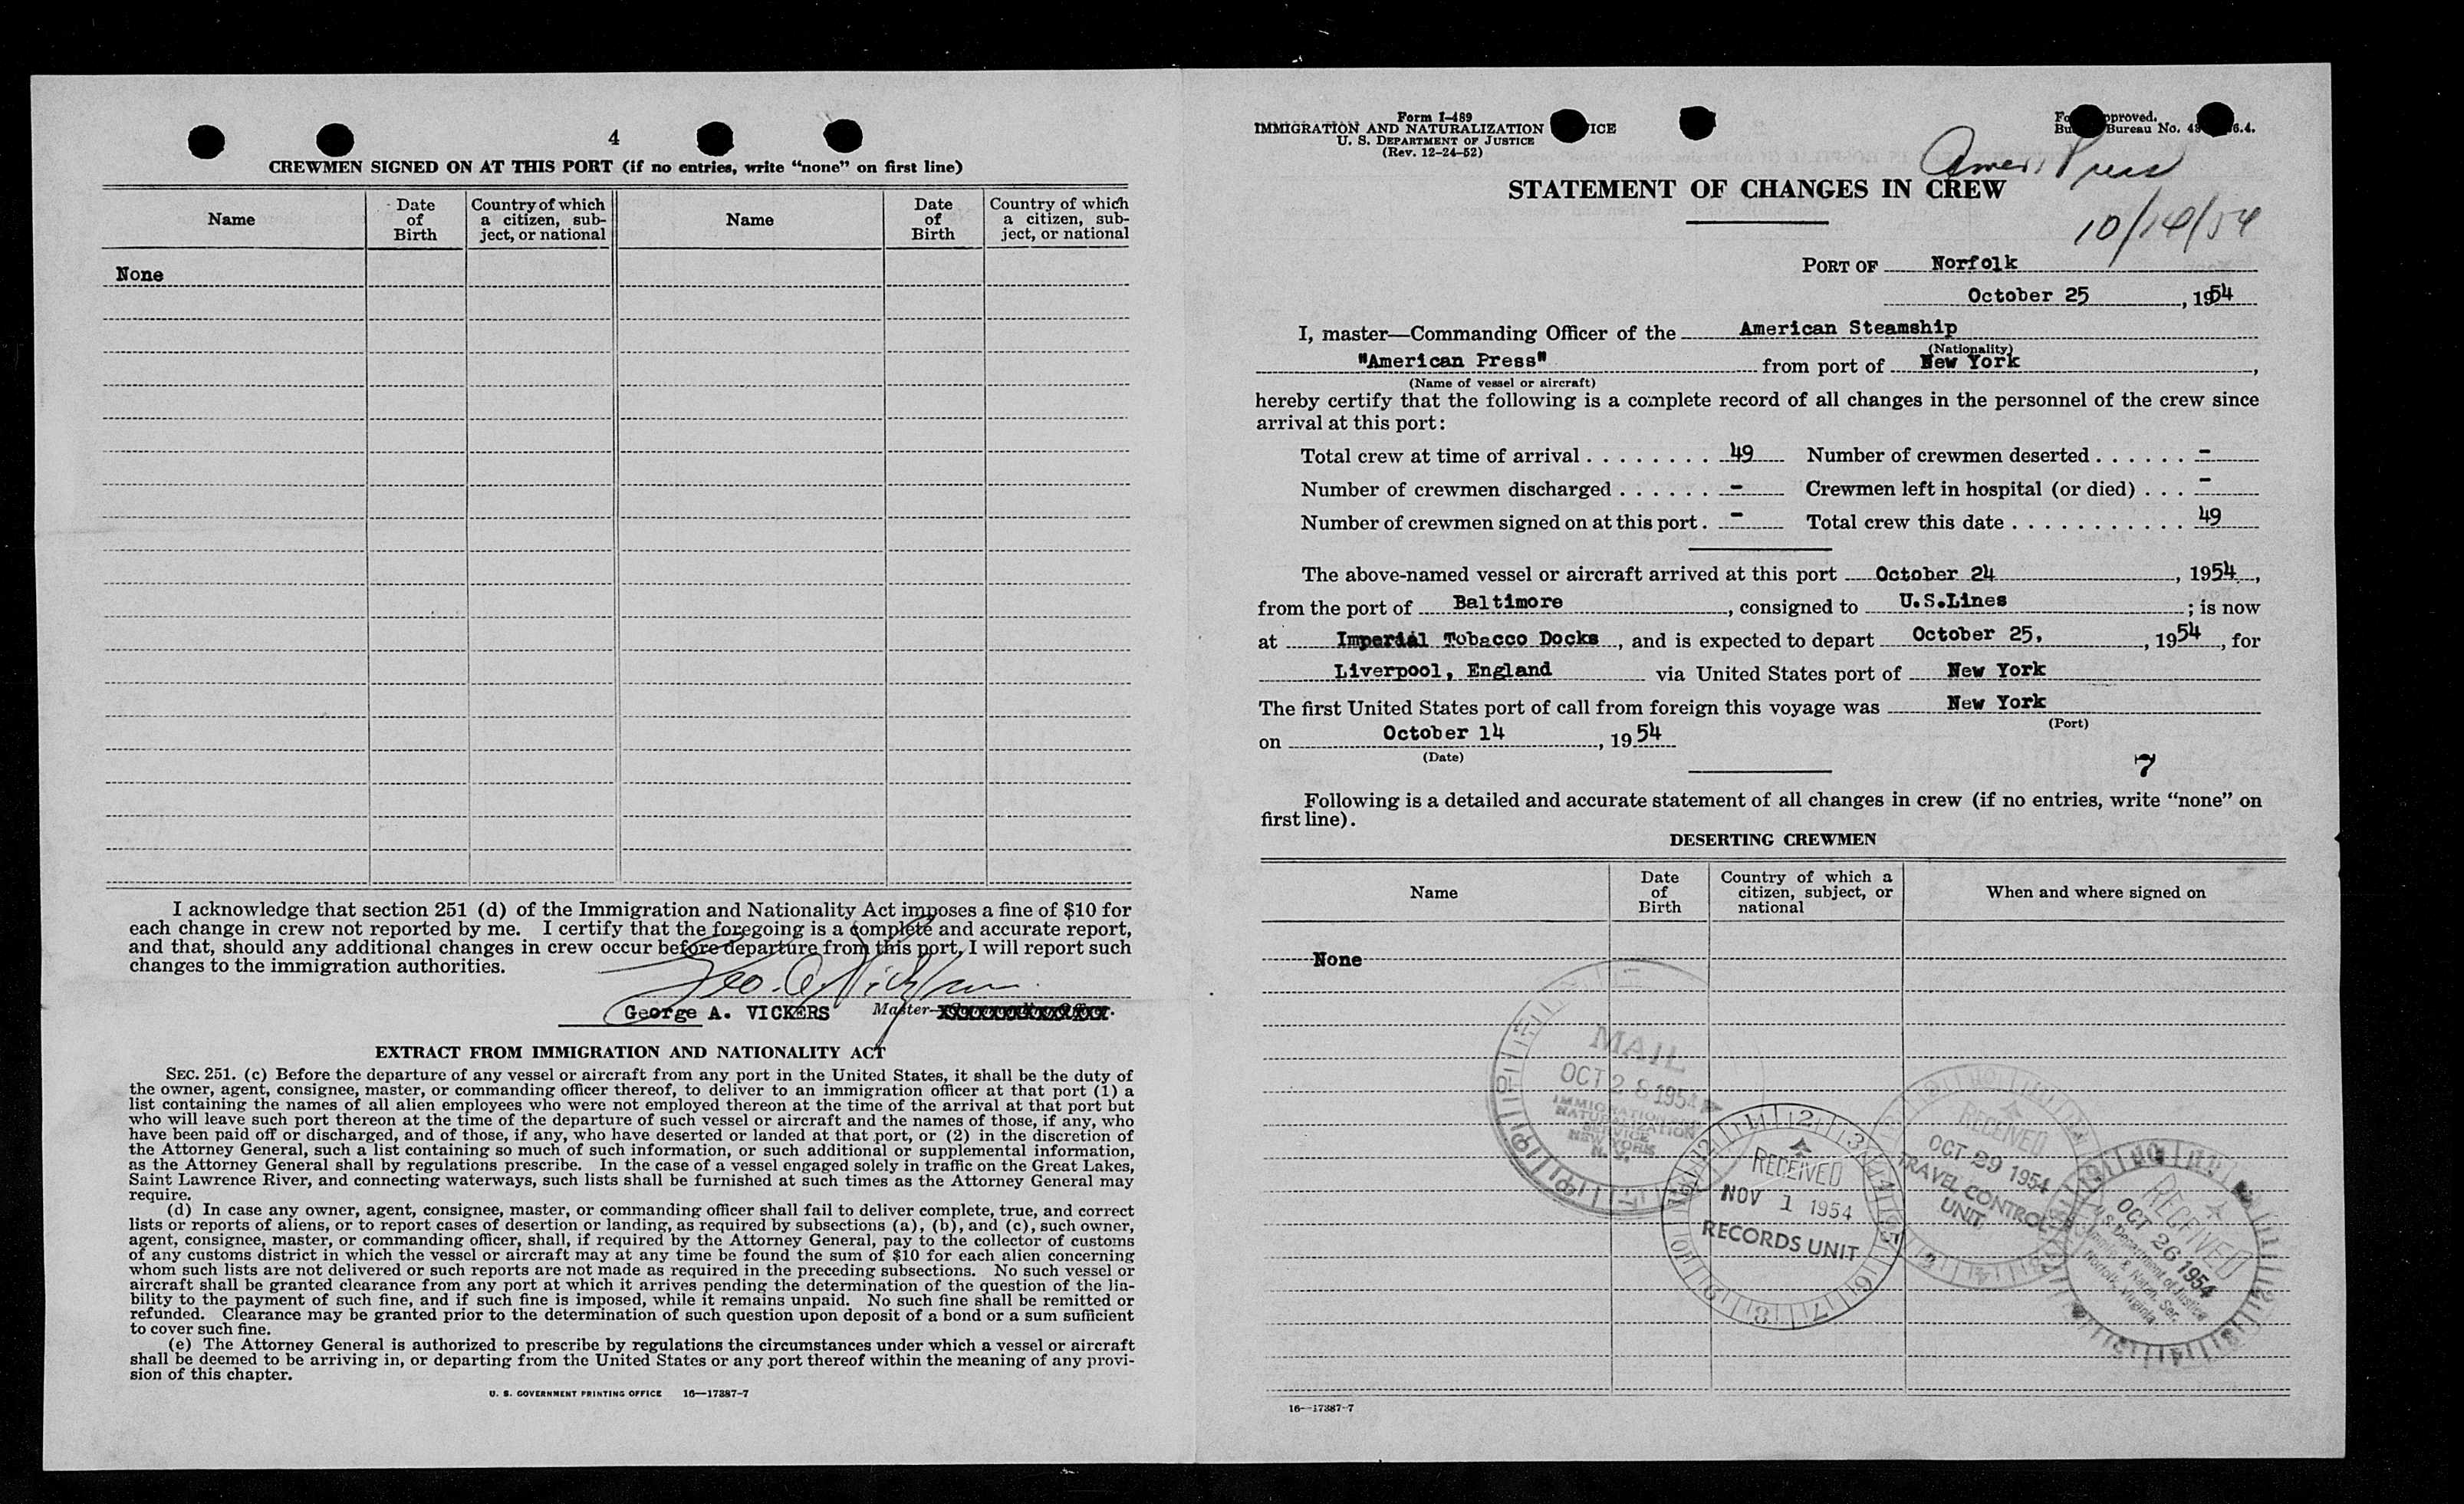 4
CREWMEN SIGNED ON AT THIS PORT (if no entries, write “none” on first line)
Name
Date of Birth
Country of which a citizen, sub-ject, or national
Name
Date of Birth
Country of which a citizen, sub-ject, or national
None
I acknowledge that section 251 (d) of the Immigration and Nationality Act imposes a fine of $10 for
each change in crew not reported by me. I certify that the foregoing is a complete and accurate report,
and that, should any additional changes in crew occur before departure from this port, I will report such
changes to the immigration authorities.
Geo. A. Vickers
George A. VICKERS Master
EXTRACT FROM IMMIGRATION AND NATIONALITY ACT
SEC. 251. (c) Before the departure of any vessel or aircraft from any port in the United States, it shall be the duty of
the owner, agent, consignee, master, or commanding officer thereof, to deliver to an immigration officer at that port (1) a
list containing the names of all alien employees who were not employed thereon at the time of the arrival at that port but
who will leave such port thereon at the time of the departure of such vessel or aircraft and the names of those, if any, who
have been paid off or discharged, and of those, if any, who have deserted or landed at that port, or (2) in the discretion of
the Attorney General, such a list containing so much of such information, or such additional or supplemental information,
as the Attorney General shall by regulations prescribe. In the case of a vessel engaged solely in traffic on the Great Lakes,
Saint Lawrence River, and connecting waterways, such lists shall be furnished at such times as the Attorney General may
require.
(d) In case any owner, agent, consignee, master, or commanding officer shall fail to deliver complete, true, and correct
lists or reports of aliens, or to report cases of desertion or landing, as required by subsections (a), (b), and (c), such owner,
agent, consignee, master, or commanding officer, shall, if required by the Attorney General, pay to the collector of customs
of any customs district in which the vessel or aircraft may at any time be found the sum of $10 for each alien concerning
whom such lists are not delivered or such reports are not made as required in the preceding subsections. No such vessel or
aircraft shall be granted clearance from any port at which it arrives pending the determination of the question of the lia-
bility to the payment of such fine, and if such fine is imposed, while it remains unpaid. No such fine shall be remitted or
refunded. Clearance may be granted prior to the determination of such question upon deposit of a bond or a sum sufficient
to cover such fine.
(e) The Attorney General is authorized to prescribe by regulations the circumstances under which a vessel or aircraft
shall be deemed to be arriving in, or departing from the United States or any port thereof within the meaning of any provi-
sion of this chapter.
U. S. GOVERNMENT PRINTING OFFICE 16—17387-7
Form I-489
IMMIGRATION AND NATURALIZATION
U. S. DEPARTMENT OF JUSTICE
(Rev. 12-24-52)
Bureau No.
Amer. Press
STATEMENT OF CHANGES IN CREW
10/14/54
PORT OF Norfolk
October 25, 1954
I, master—Commanding Officer of the American Steamship
(Nationality)
"American Press" from port of New York,
(Name of vessel or aircraft)
hereby certify that the following is a complete record of all changes in the personnel of the crew since
arrival at this port:
Total crew at time of arrival 49 Number of crewmen deserted -
Number of crewmen discharged - Crewmen left in hospital (or died) -
Number of crewmen signed on at this port - Total crew this date 49
The above-named vessel or aircraft arrived at this port October 24, 1954,
from the port of Baltimore, consigned to U.S.Lines; is now
at Imperial Tobacco Docks, and is expected to depart October 25, , 1954, for
Liverpool, England via United States port of New York
The first United States port of call from foreign this voyage was New York
(Port)
on October 14, 1954
(Date)
7
Following is a detailed and accurate statement of all changes in crew (if no entries, write “none” on
first line).
DESERTING CREWMEN
Name
Date of Birth
Country of which a citizen, subject, or national
When and where signed on
None
MAIL
OCT 28 1954
IMMIGRATION AND
NATURALIZATION
SERVICE
NEW YORK
N. Y.
RECEIVED
NOV 1 1954
RECORDS UNIT
RECEIVED
OCT 29 1954
TRAVEL CONTROL
UNIT
RECEIVED
OCT 26 1954
U.S. Department of Justice
Immig. & Natzn. Ser.
Norfolk, Virginia
16—17387-7